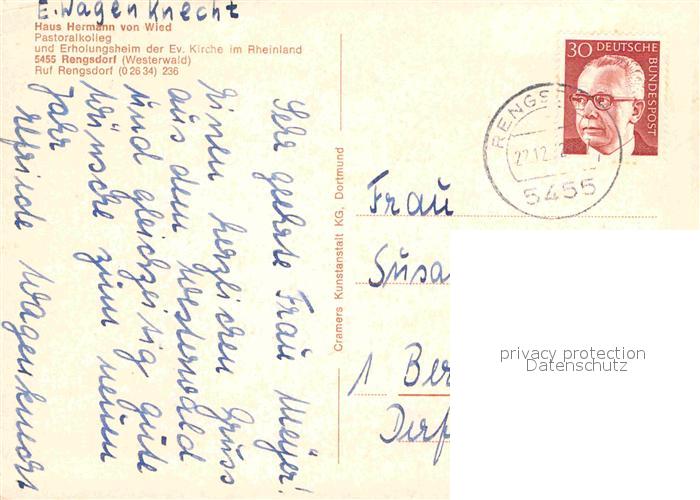 E. Wagenknecht
Haus Hermann von Wied
Pastoralkolleg
und Erholungsheim der Ev. Kirche im Rheinland
5455 Rengsdorf (Westerwald)
Ruf Rengsdorf (0 26 34) 236
Sehr geehrte Frau Meyer!
Einen herzlichen Gruss
aus dem Westerwald
und gleichzeitig gute
Wünsche zum neuen
Jahr
Elfriede Wagenknecht
Cramers Kunstanstalt KG, Dortmund
30 DEUTSCHE
BUNDESPOST
5455
Frau
Susa
1 Ber
privacy protection
Datenschutz